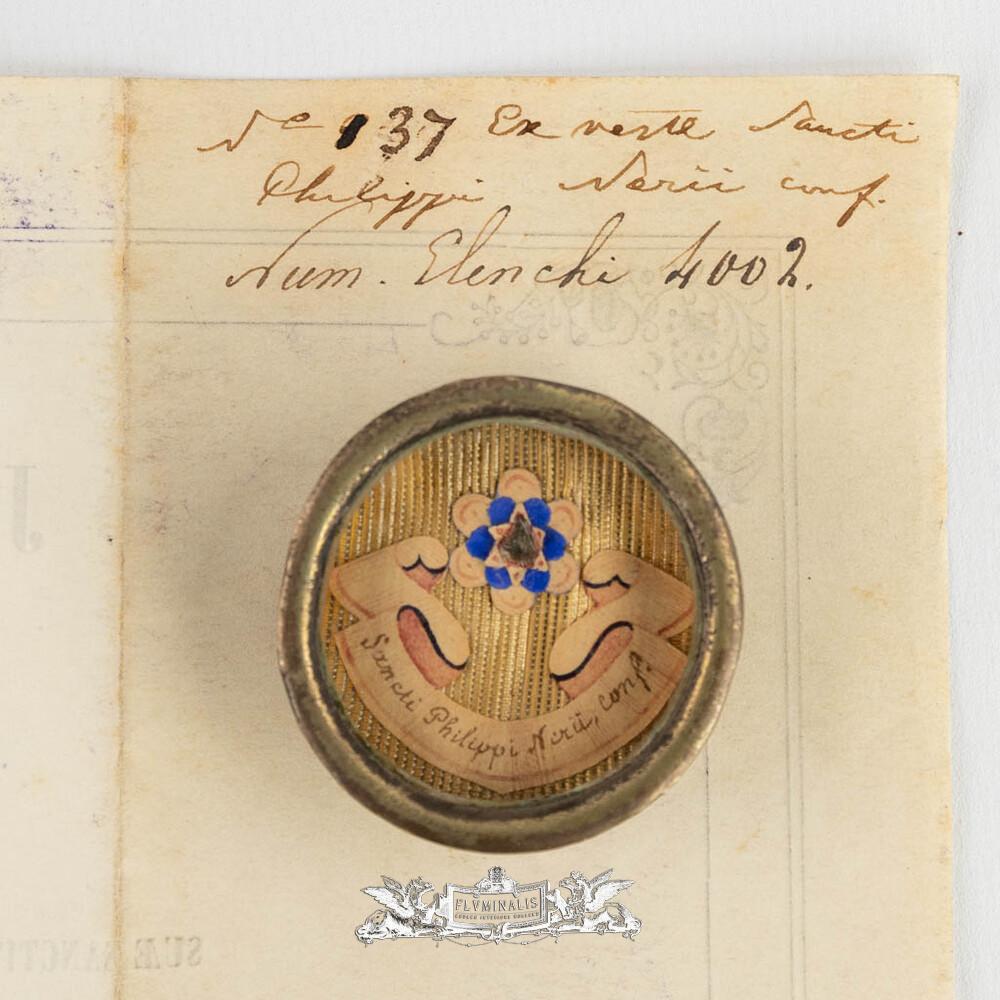 Nº 137 Ex veste Sancti
Philippi Nerii conf.
Num. Elenchi 4002.
Sancti Philippi Nerii, conf.
FLVMINALIS